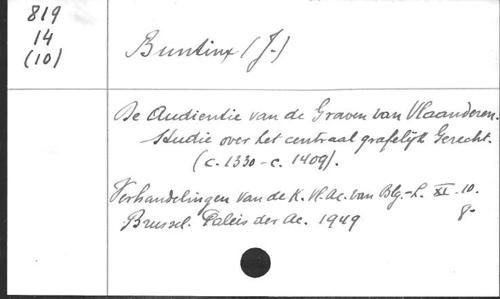 819
14
(10)
Buntinx (J.)
De Audientie van de Graven van Vlaanderen.
Studie over het centraal grafelijk Gerecht.
(c. 1330 - c. 1409).
Verhandelingen van de K. Vl. Ac. van Blg. - L. XI - 10.
Brussel. Paleis der Ac. 1949 8°